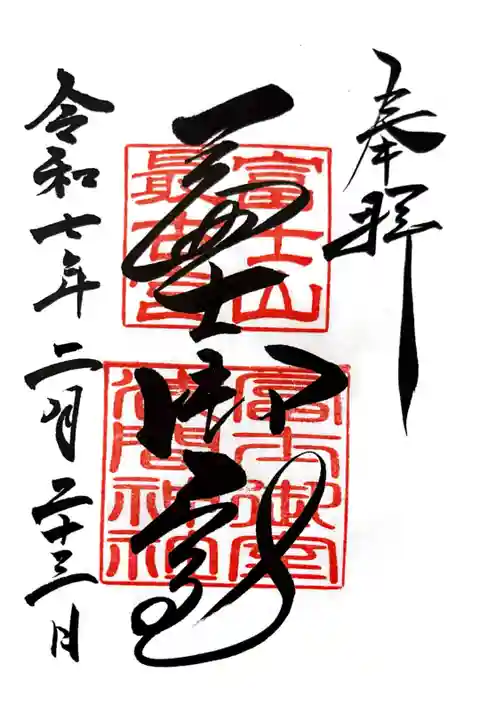 奉拝
富士山
最古宮
富士御室
浅間神社
令和七年二月二十三日